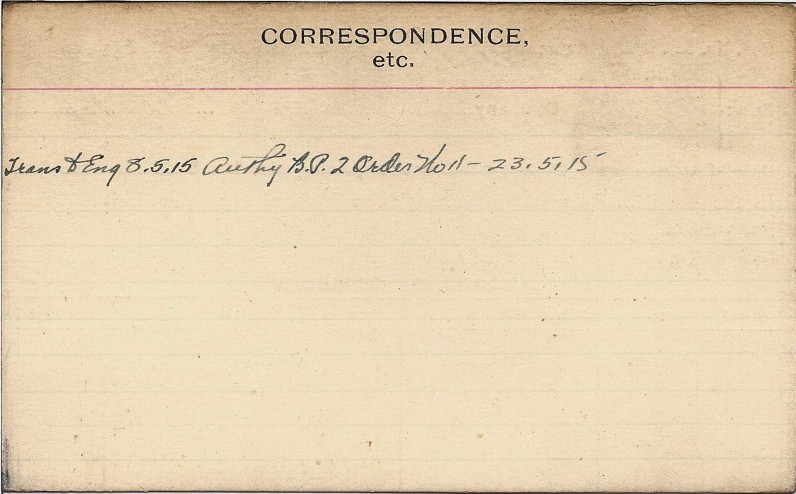 CORRESPONDENCE,
etc.
Trans to Eng 8.5.15 Authy B.P. 2 Order No 11 - 23.5.15